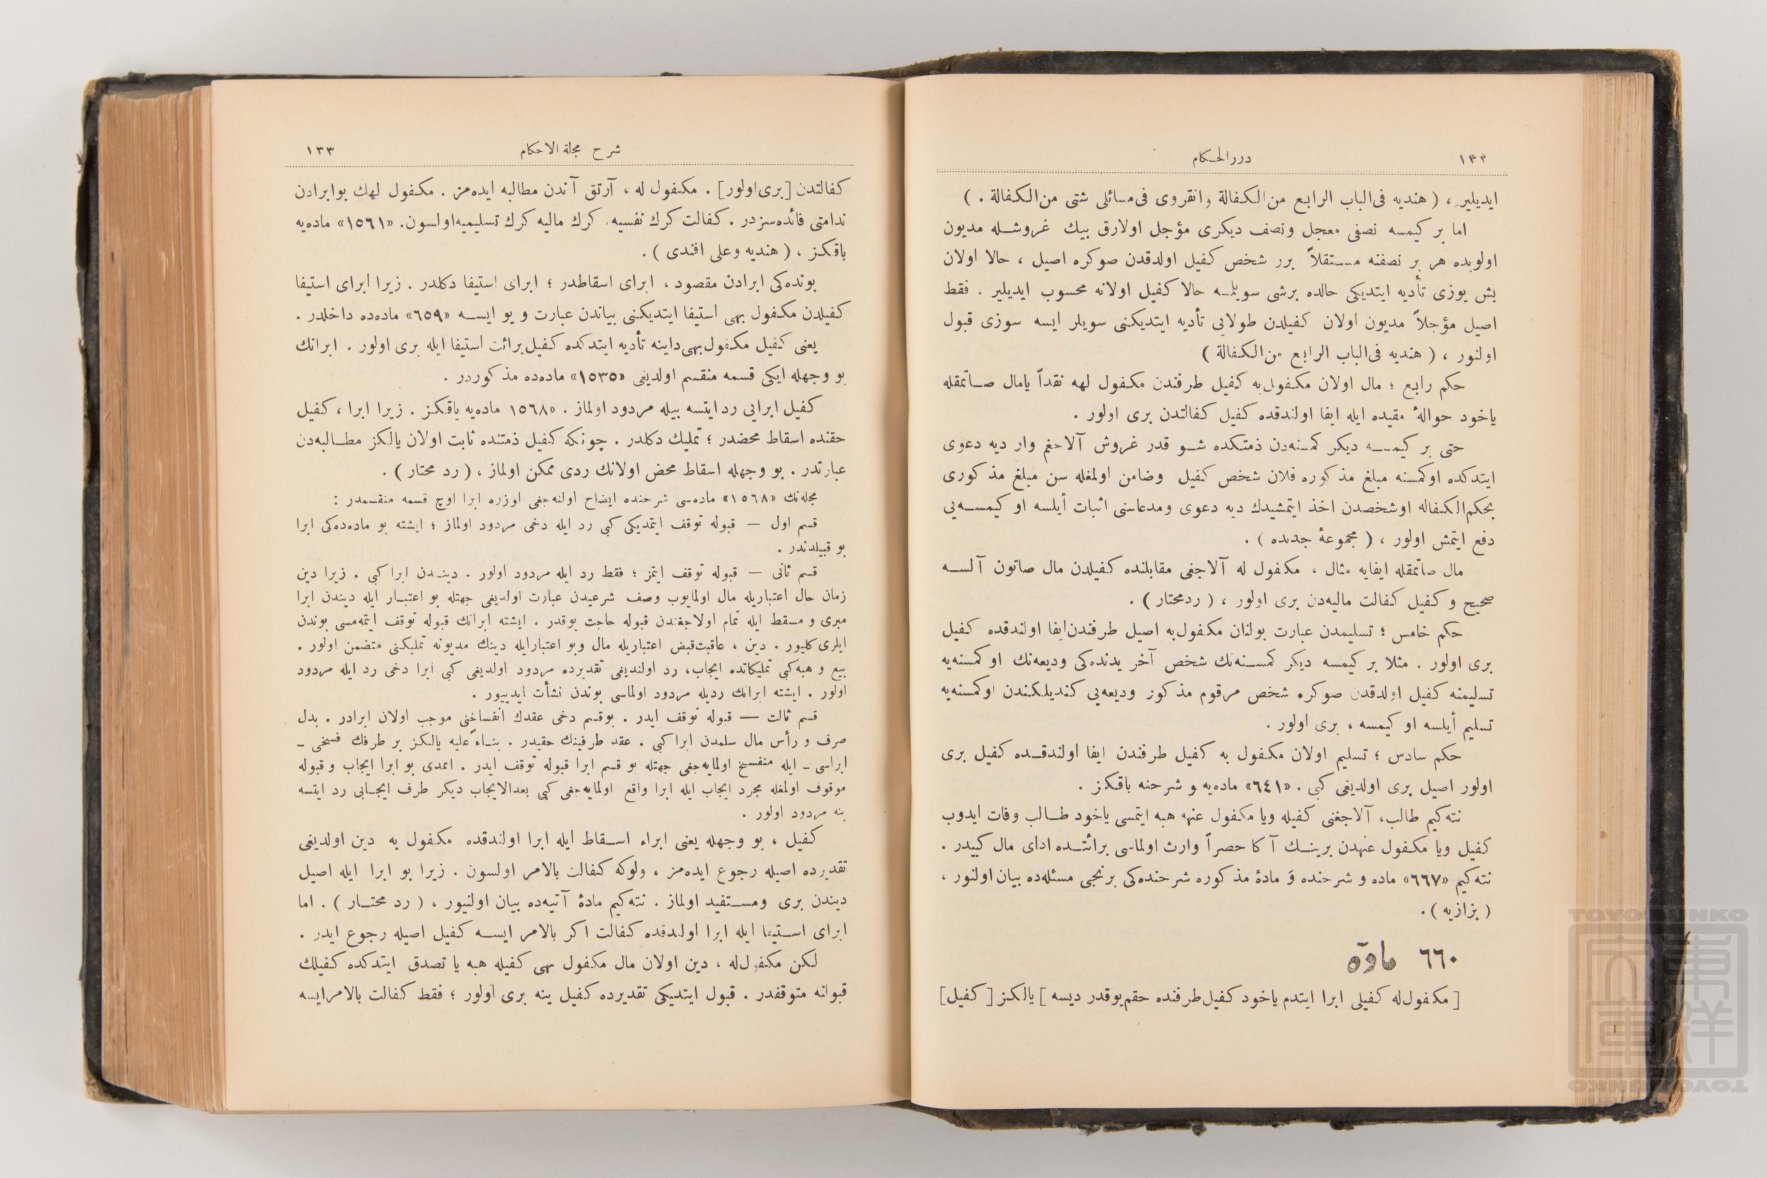 ١٣٢
درر الحكام
ايديلير ، ( هنديه فى الباب الرابع من الكفالة وانقروى فى مسائلى شتى من الكفالة . )
اما بر كيمسه نصفى معجل ونصف ديكرى مؤجل اولارق بيك غروشله مديون
اولوبده هر بر نصفنه مستقلاً برر شخص كفيل اولدقدن صوكره اصيل ، حالا اولان
بش يوزى تأديه ايتديكى حالده برشى سويلمسه حالا كفيل اولانه محسوب ايديلير . فقط
اصيل مؤجلاً مديون اولان كفيلدن طولايى تأديه ايتديكنى سويلر ايسه سوزى قبول
اولنور ، ( هنديه فى الباب الرابع من الكفالة )
حكم رابع ؛ مال اولان مكفول به كفيل طرفندن مكفول لهه نقداً يامال صاتمقله
ياخود حوالۀ مقيده ايله ايفا اولندقده كفيل كفالتدن برى اولور .
حتى بر كيمسه ديكر كمسنه‌دن ذمتكده شو قدر غروش آلاجغم وار ديه دعوى
ايتدكده اوكمسنه مبلغ مذكوره فلان شخص كفيل وضامن اولمغله سن مبلغ مذكورى
بحكم الكفاله اوشخصدن اخذ ايتمشيدك ديه دعوى ومدعاسنى اثبات أيلسه او كيمسه‌يى
دفع ايتمش اولور ، ( مجموعۀ جديده ) .
مال صاتمقله ايفايه مثال ، مكفول له آلاجغى مقابلنده كفيلدن مال صاتون آلسه
صحيح و كفيل كفالت ماليه‌دن برى اولور ، ( ردمحتار ) .
حكم خامس ؛ تسليمدن عبارت بولنان مكفول به اصيل طرفندن ايفا اولندقده كفيل
برى اولور . مثلا بر كيمسه ديكر كمسنه‌نك شخص آخر يدنده‌كى وديعه‌نك اوكمسنه‌يه
تسليمنه كفيل اولدقدن صوكره شخص مرقوم مذكور وديعه‌يى كنديلكندن اوكمسنه‌يه
تسليم أيلسه او كيمسه ، برى اولور .
حكم سادس ؛ تسليم اولان مكفول به كفيل طرفندن ايفا اولندقده كفيل برى
اولور اصيل برى اولديغى كبى . «٦٤١» ماده‌يه و شرحنه باقكز .
نته‌كيم طالب، آلاجغنى كفيله ويا مكفول عنهه هبه ايتمسى ياخود طالب وفات ايدوب
كفيل ويا مكفول عنهدن برينك آكا حصراً وارث اولماسى برائتده اداى مال كبيدر .
نته‌كيم «٦٦٧» ماده و شرحنده و مادۀ مذكوره شرحنده‌كى برنجى مسئله‌ده بيان اولنور ،
( بزازيه ) .
٦٦٠ ماده
[ مكفول له كفيلى ابرا ايتدم ياخود كفيل طرفنده حقم يوقدر ديسه ] يالكز [ كفيل ]
شرح مجلة الاحكام
١٣٣
كفالتدن [برى اولور] . مكفول له ، آرتق آندن مطالبه ايده‌مز . مكفول لهك بوابرادن
ندامتى فائده‌سزدر . كفالت كرك نفسيه، كرك ماليه كرك تسليميه اولسون. «١٥٦١» ماده‌يه
باقكز ، ( هنديه وعلى افندى ) .
بونده‌كى ابرادن مقصود ، ابراى اسقاطدر ؛ ابراى استيفا دكلدر . زيرا ابراى استيفا
كفيلدن مكفول بهى استيفا ايتديكنى بياندن عبارت و بو ايسه «٦٥٩» ماده‌ده داخلدر .
يعنى كفيل مكفول بهى داينه تأديه ايتدكده كفيل برائت استيفا ايله برى اولور . ابرانك
بو وجهله ايكى قسمه منقسم اولديغى «١٥٣٥» ماده‌ده مذكوردر .
كفيل ابرايى رد ايتسه بيله مردود اولماز . «١٥٦٨ ماده‌يه باقكز . زيرا ابرا ، كفيل
حقنده اسقاط محضدر ؛ تمليك دكلدر . چونكه كفيل ذمتنده ثابت اولان يالكز مطالبه‌دن
عبارتدر . بو وجهله اسقاط محض اولانك ردى ممكن اولماز ، ( رد محتار ) .
مجله‌نك «١٥٦٨» ماده‌سى شرحنده ايضاح اولنه‌جغى اوزره ابرا اوچ قسمه منقسمدر :
قسم اول — قبوله توقف ايتمديكى كبى رد ايله دخى مردود اولماز ؛ ايشته بو ماده‌ده‌كى ابرا
بو قبيلدندر .
قسم ثانى — قبوله توقف ايتمز ؛ فقط رد ايله مردود اولور . ديندن ابرا كبى . زيرا دين
زمان حال اعتباريله مال اولمايوب وصف شرعيدن عبارت اولديغى جهتله بو اعتبار ايله ديندن ابرا
مبرى و مسقط ايله تمام اولاجغندن قبوله حاجت يوقدر . ايشته ابرانك قبوله توقف ايتمه‌مسى بوندن
ايلرى كليور . دين ، عاقبت قبض اعتباريله مال وبو اعتبارايله دينك مديونه تمليكنى متضمن اولور .
بيع و هبه كبى تمليكاتده ايجاب، رد اولنديغى تقديرده مردود اولديغى كبى ابرا دخى رد ايله مردود
اولور . ايشته ابرانك رديله مردود اولماسى بوندن نشأت ايدييور .
قسم ثالث — قبوله توقف ايدر . بوقسم دخى عقدك انفساخنى موجب اولان ابرادر . بدل
صرف و رأس مال سلمدن ابرا كبى . عقد طرفينك حقيدر . بناءً عليه يالكز بر طرفك فسخى ـ
ابراسى ـ ايله منفسخ اولمايه‌جغى جهتله بو قسم ابرا قبوله توقف ايدر . امدى بو ابرا ايجاب و قبوله
موقوف اولمغله مجرد ايجاب ايله ابرا واقع اولمايه‌جغى كبى بعدالايجاب ديكر طرف ايجابى رد ايتسه
ينه مردود اولور .
كفيل ، بو وجهله يعنى ابراء اسقاط ايله ابرا اولندقده مكفول به دين اولديغى
تقديرده اصيله رجوع ايده‌مز ، ولوكه كفالت بالامر اولسون . زيرا بو ابرا ايله اصيل
ديندن برى ومستفيد اولماز . نته‌كيم مادۀ آتيه‌ده بيان اولنيور ، ( رد محتار ) . اما
ابراى استيفا ايله ابرا اولندقده كفالت اكر بالامر ايسه كفيل اصيله رجوع ايدر .
لكن مكفول له ، دين اولان مال مكفول بهى كفيله هبه يا تصدق ايتدكده كفيلك
قبولنه متوقفدر . قبول ايتديكى تقديرده كفيل ينه برى اولور ؛ فقط كفالت بالامرايسه
TOYO BUNKO
東洋
文庫
TOYO BUNKO